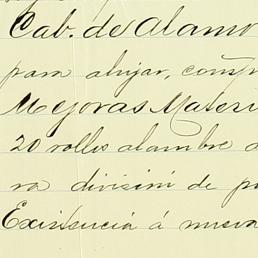 Cab. de Alamo
para alujar, comp
Mejoras Materi
20 rollos alambre d
ra divisini de p
Existencia á nueva